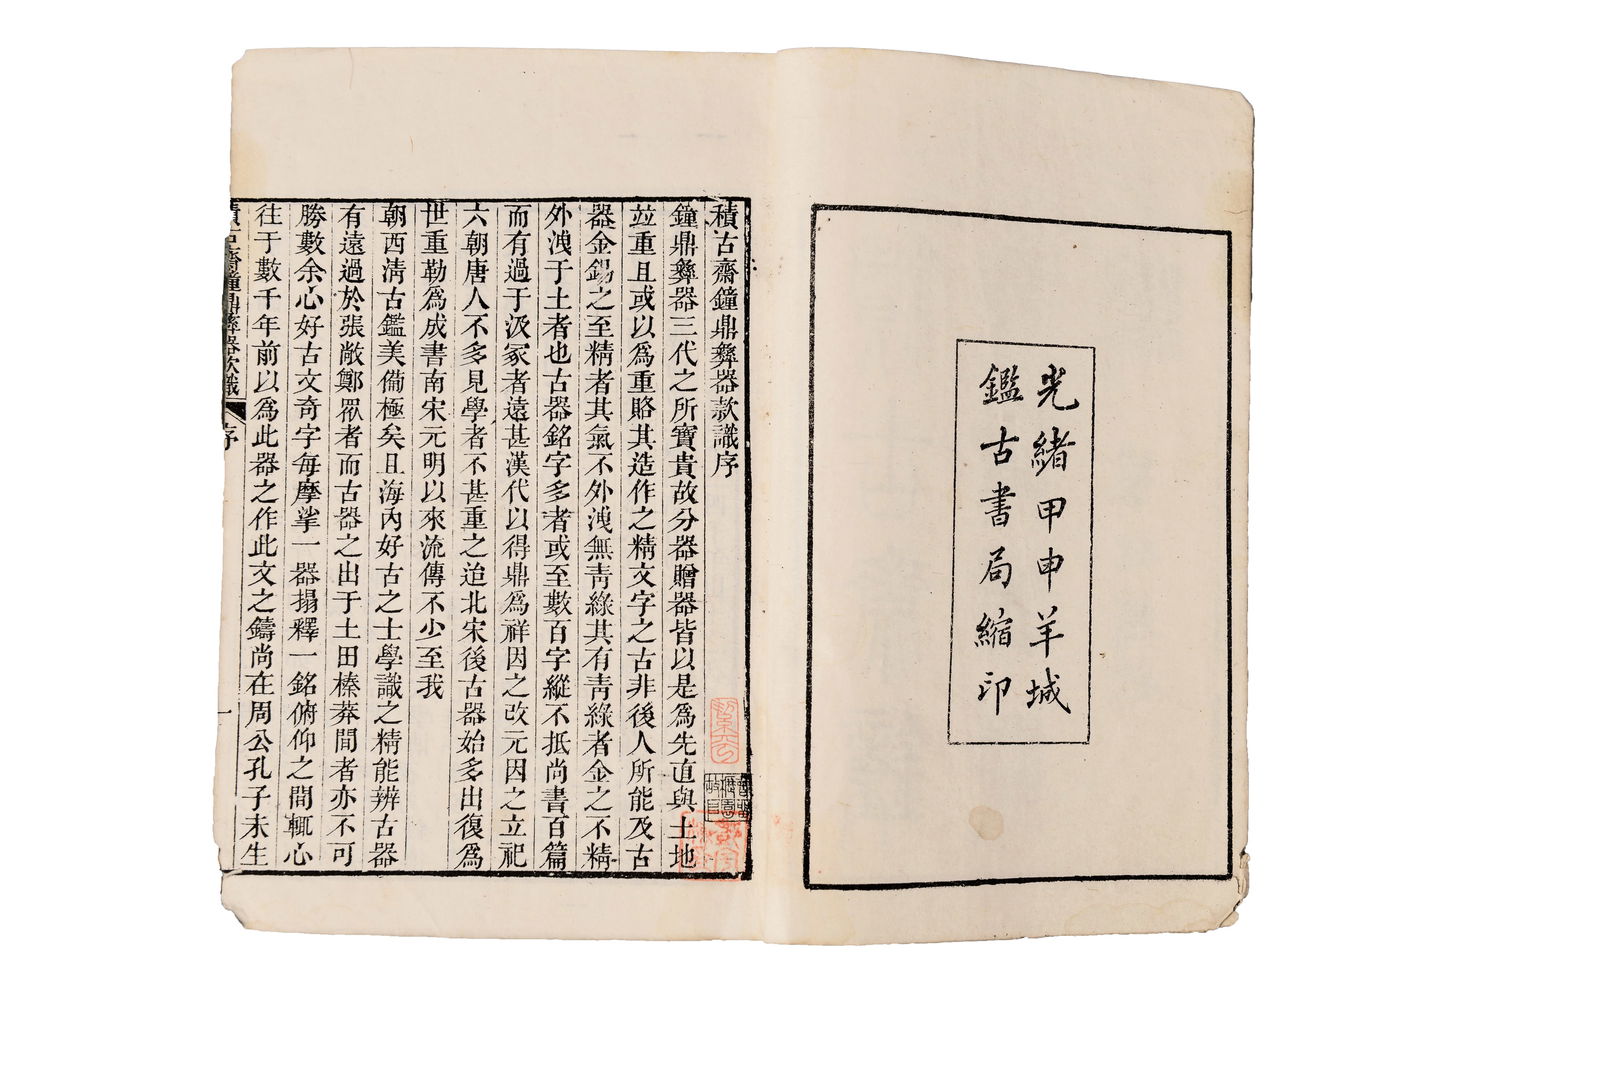 光緒甲申羊城
鑑古書局縮印
積古齋鐘鼎彝器款識序
鐘鼎彝器三代之所寶貴故分器贈器皆以是爲先直與土地
竝重且或以爲重賂其造作之精文字之古非後人所能及古
器金錫之至精者其氣不外洩無青綠其有青綠者金之不精
外洩于土者也古器銘字多者或至數百字縱不抵尚書百篇
而有過于汲冢者遠甚漢代以得鼎爲祥因之改元因之立祀
六朝唐人不多見學者不甚重之迨北宋後古器始多出復爲
世重勒爲成書南宋元明以來流傳不少至我
朝西清古鑑美備極矣且海內好古之士學識之精能辨古器
有遠過於張敞鄭眾者而古器之出于土田榛莽閒者亦不可
勝數余心好古文奇字每摩挲一器搨釋一銘俯仰之閒輒心
往于數千年前以爲此器之作此文之鑄尚在周公孔子未生
積古齋鐘鼎彝器款識
序
一